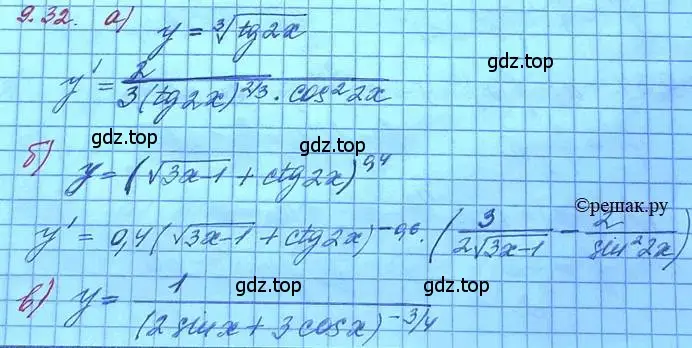 9.32. а) y = ∛(tg2x)
gdz.top
y' = 2 / (3(tg2x)^(2/3) · cos²2x)
gdz.top gdz.top
б) y = (√(3x-1) + ctg2x)^0,4
©решак.ру
y' = 0,4(√(3x-1) + ctg2x)^(-0,6) · (3 / (2√(3x-1)) - 2 / sin²2x)
gdz.top gdz.top
в) y = 1 / (2sinx + 3cosx)^(-3/4)
gdz.top